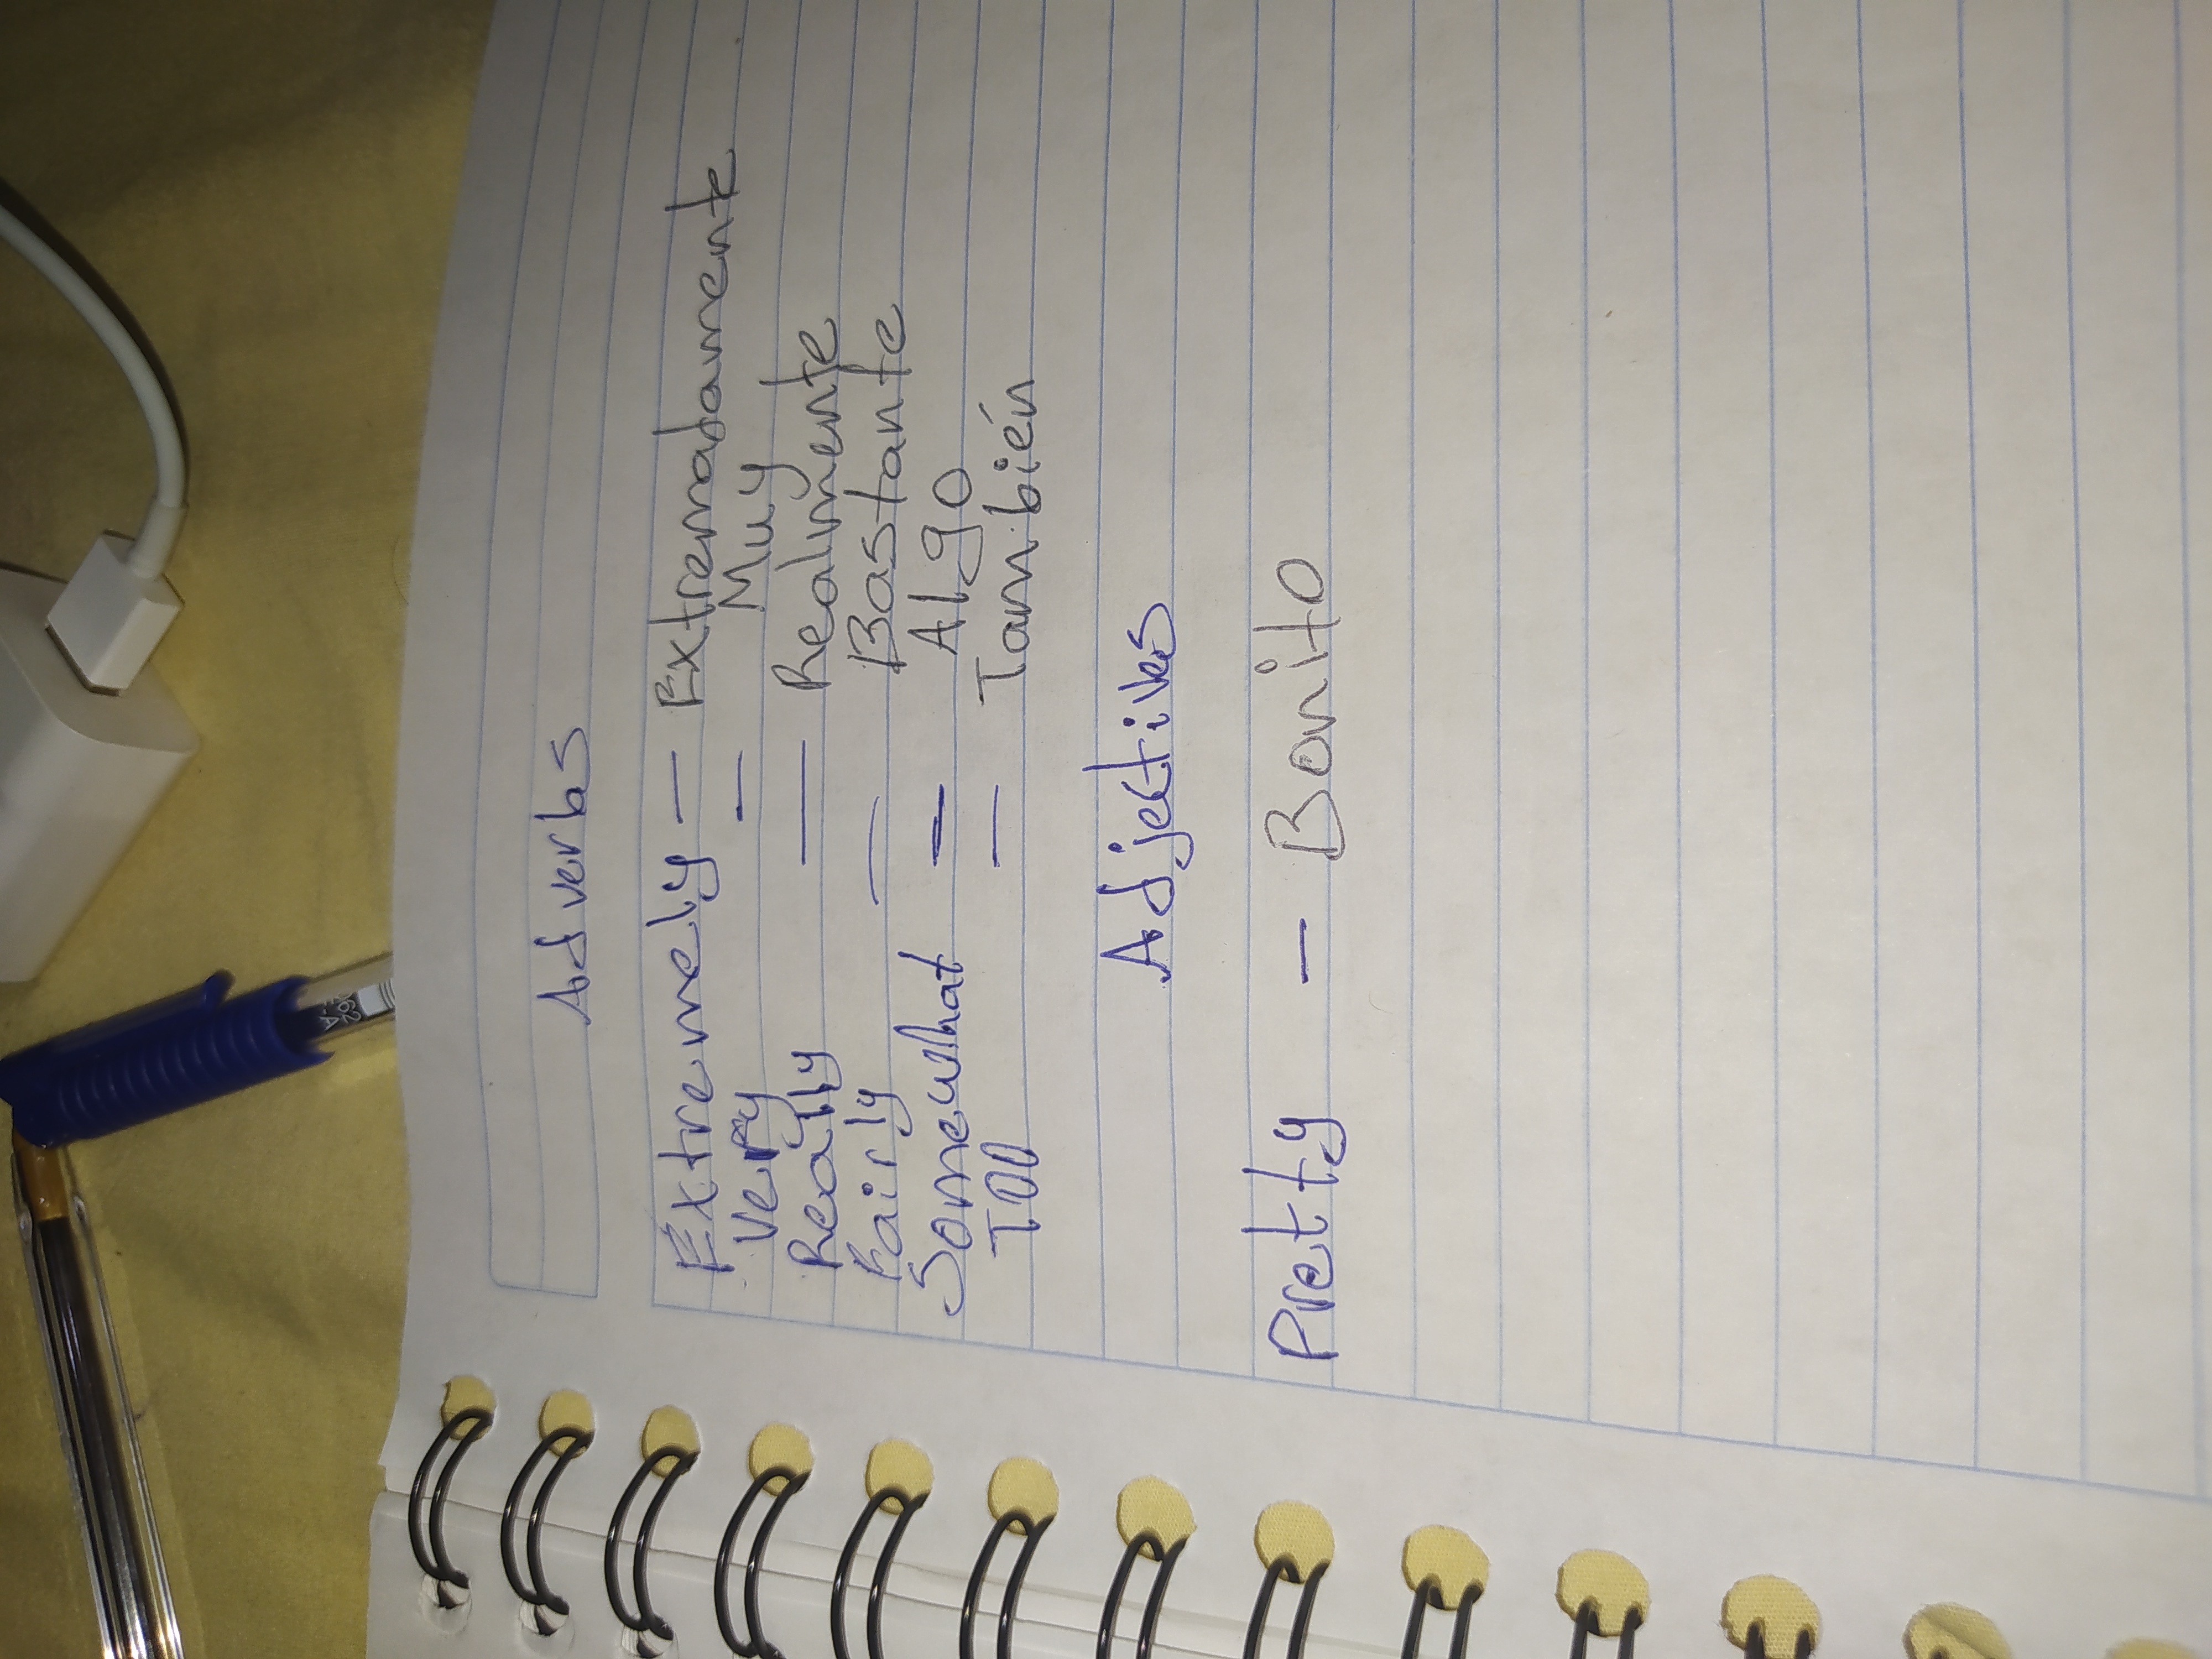 Adverbs
Extremely — Extremadamente
Very — Muy
Really — Realmente
Fairly — Bastante
Somewhat — Algo
Too — También
Adjectives
Pretty — Bonito